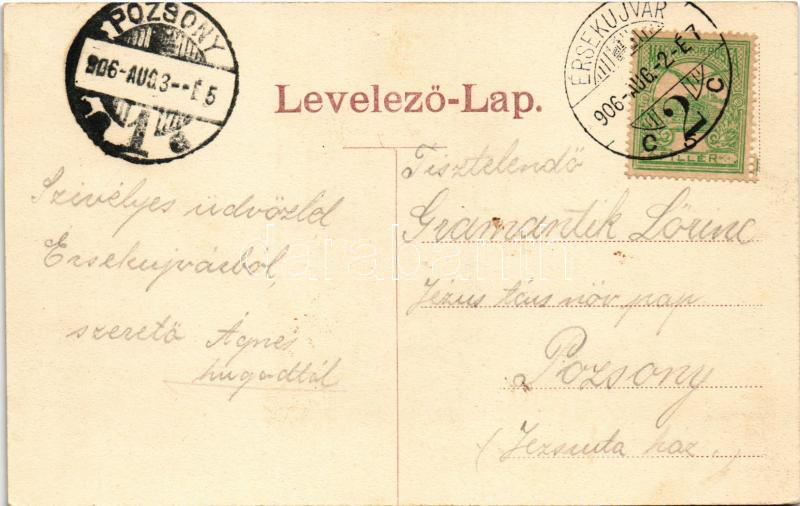 POZSONY
906-AUG.3--É5
ÉRSEKUJVÁR
906-AUG.-2-É7
C C
2
FILLÉR
Levelező-Lap.
Szivélyes üdvözlet
Érsekujvárból,
szerető Ágnes
hugodtól
Tisztelendő
Gramantik Lőrinc
Jézus társ. növ. pap
Pozsony
(Jezsuita ház.
darabanth